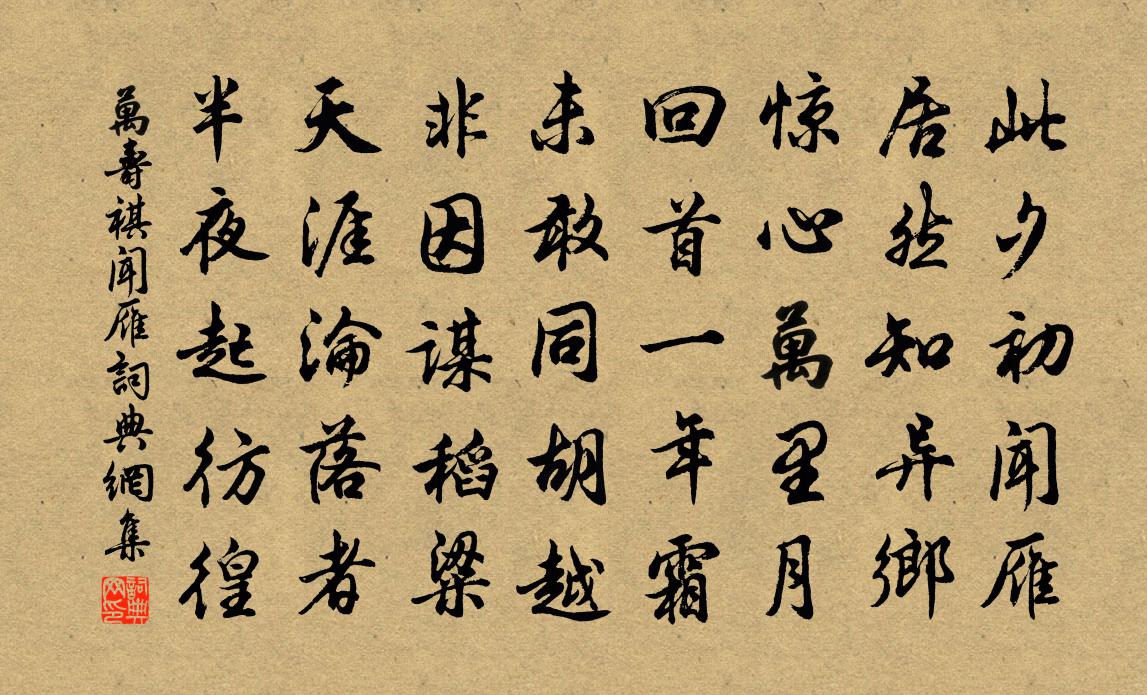 此夕初闻雁
居然知异鄉
惊心萬里月
回首一年霜
未敢同胡越
非因谋稻粱
天涯淪落者
半夜起彷徨
萬壽祺闻雁詞典網集
詞典
网印